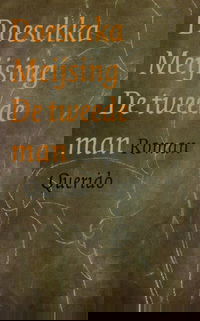 Doeschka
Meijsing
De tweede
man Roman
Querido